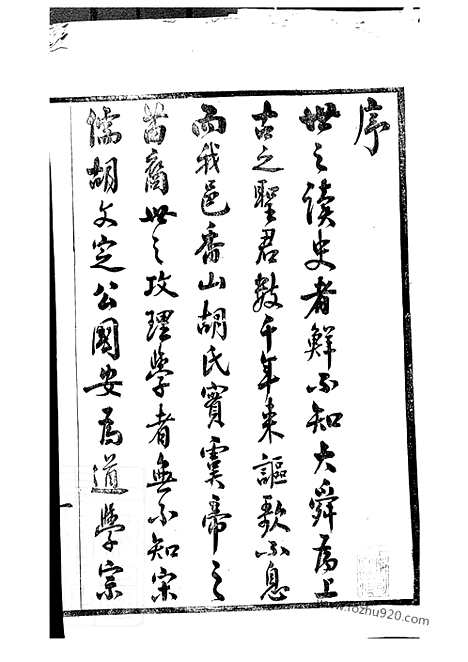 序
世之读史者鮮不知大舜為上
古之聖君數千年来謳歌不息
而我邑香山胡氏實虞帝之
苗裔世之攻理學者無不知宋
儒胡文定公國安為道學宗
www.fozhu920.com